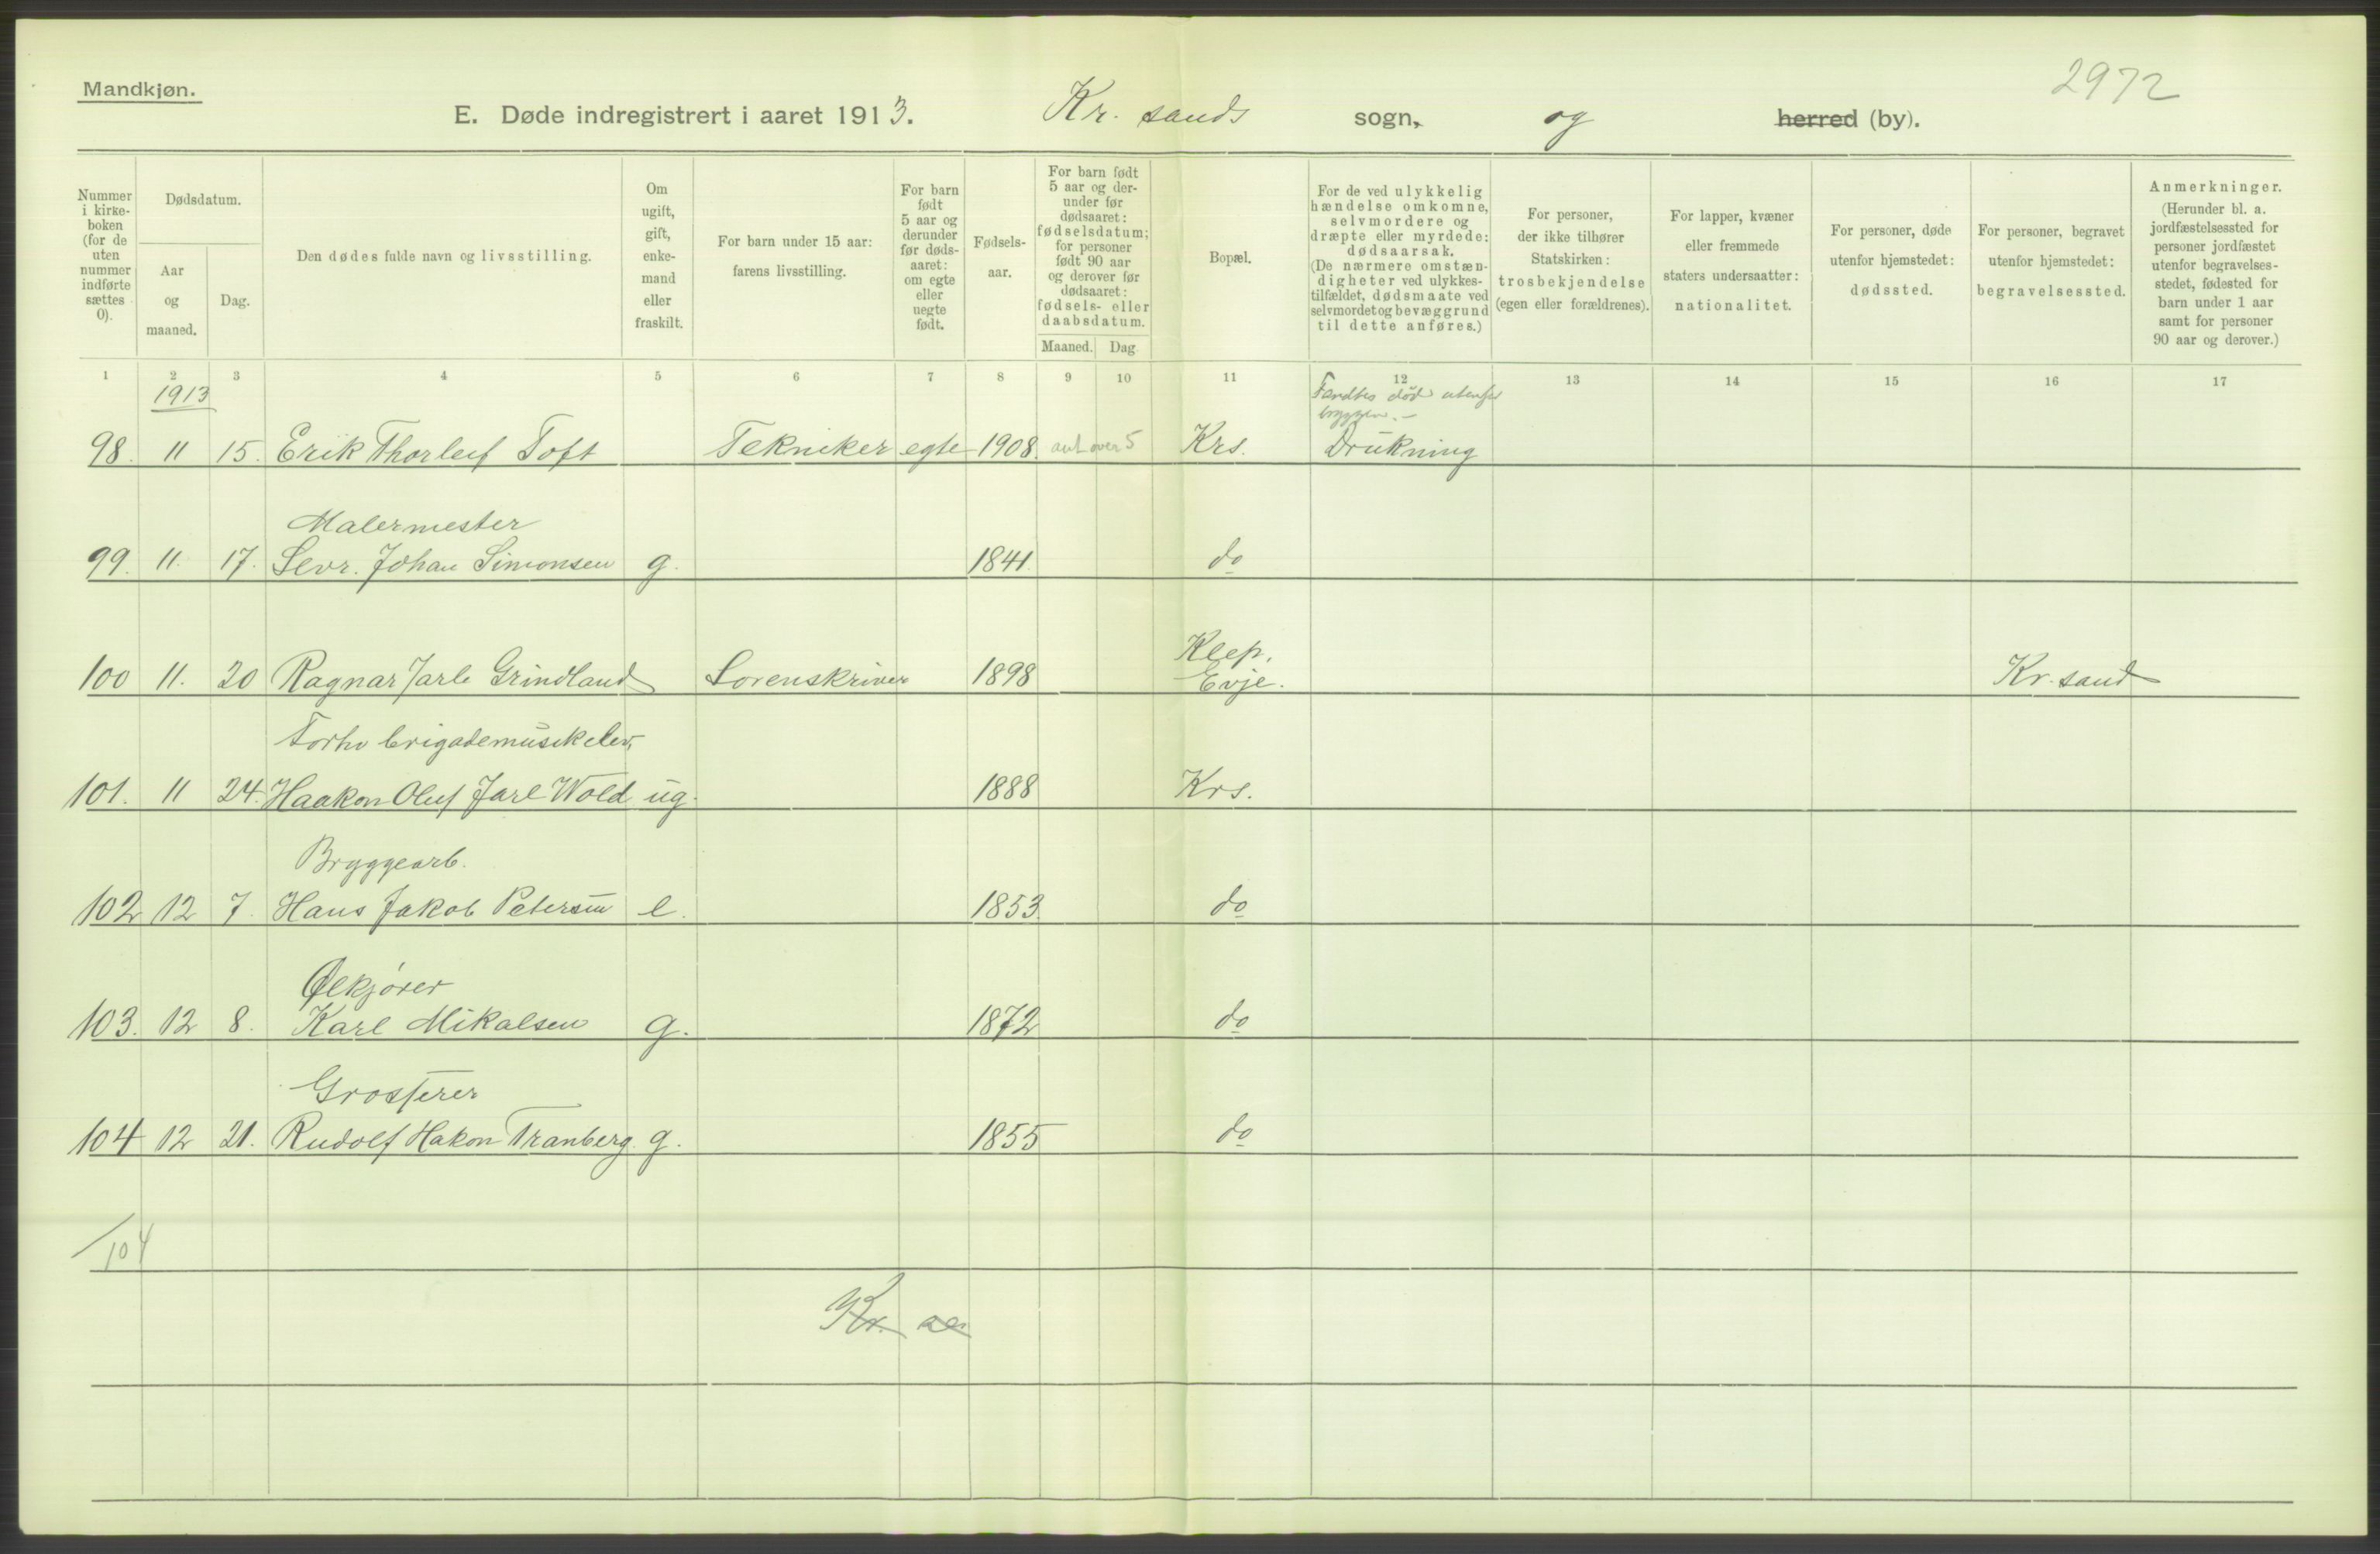 Mandkjøn.
2972
E. Døde indregistrert i aaret 1913. Kr. sands sogn, og herred (by).
Nummer i kirkeboken (for de uten nummer indførte sættes 0).
Dødsdatum.
Aar og maaned.
Dag.
Den dødes fulde navn og livsstilling.
Om ugift, gift, enkemand eller fraskilt.
For barn under 15 aar: farens livsstilling.
For barn født 5 aar og derunder før dødsaaret: om egte eller uegte født.
Fødselsaar.
For barn født 5 aar og derunder før dødsaaret: fødselsdatum; for personer født 90 aar og derover før dødsaaret: fødsels- eller daabsdatum.
Maaned. Dag
Bopæl.
For de ved ulykkelig hændelse omkomne, selvmordere og dræpte eller myrdede: dødsaarsak. (De nærmere omstændigheter ved ulykkestilfældet, dødsmaate ved selvmordet og bevæggrund til dette anføres.)
For personer, der ikke tilhører Statskirken: trosbekjendelse (egen eller forældrenes).
For lapper, kvæner eller fremmede staters undersaatter: nationalitet.
For personer, døde utenfor hjemstedet: dødssted.
For personer, begravet utenfor hjemstedet: begravelsessted.
Anmerkninger. (Herunder bl. a. jordfæstelsessted for personer jordfæstet utenfor begravelsesstedet, fødested for barn under 1 aar samt for personer 90 aar og derover.)
1 2 3 4 5 6 7 8 9 10 11 12 13 14 15 16 17
1913
Fandtes død utenfor
bryggen. -
98. 11 15. Erik Thorleif Toft Tekniker egte 1908. ant over 5 Krs. Drukning
Malermester
99. 11. 17. Sevr. Johan Simonsen g. 1841. do
Klep.
100 11. 20 Ragnar Jarle Grindland Sorenskriver 1898 Evje. Kr. sand
Forhv brigademusikelev,
101. 11 24. Haakon Oluf Jarl Wold ug. 1888 Krs.
Bryggearb.
102 12 7. Hans Jakob Petersen e. 1853. do
Ølkjører
103. 12 8. Karl Mikalsen g. 1872 do
Grosserer
104 12 21. Rudolf Hakon Tranberg. g. 1855 do
104
Kr.